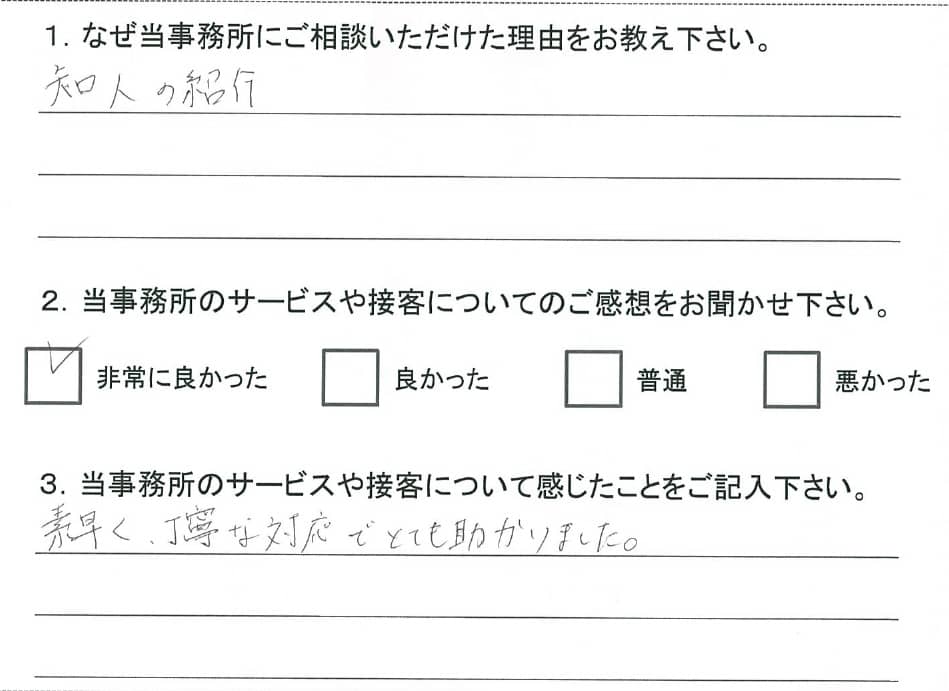 1. なぜ当事務所にご相談いただけた理由をお教え下さい。
知人の紹介
2. 当事務所のサービスや接客についてのご感想をお聞かせ下さい。
非常に良かった 良かった 普通 悪かった
3. 当事務所のサービスや接客について感じたことをご記入下さい。
素早く、丁寧な対応でとても助かりました。